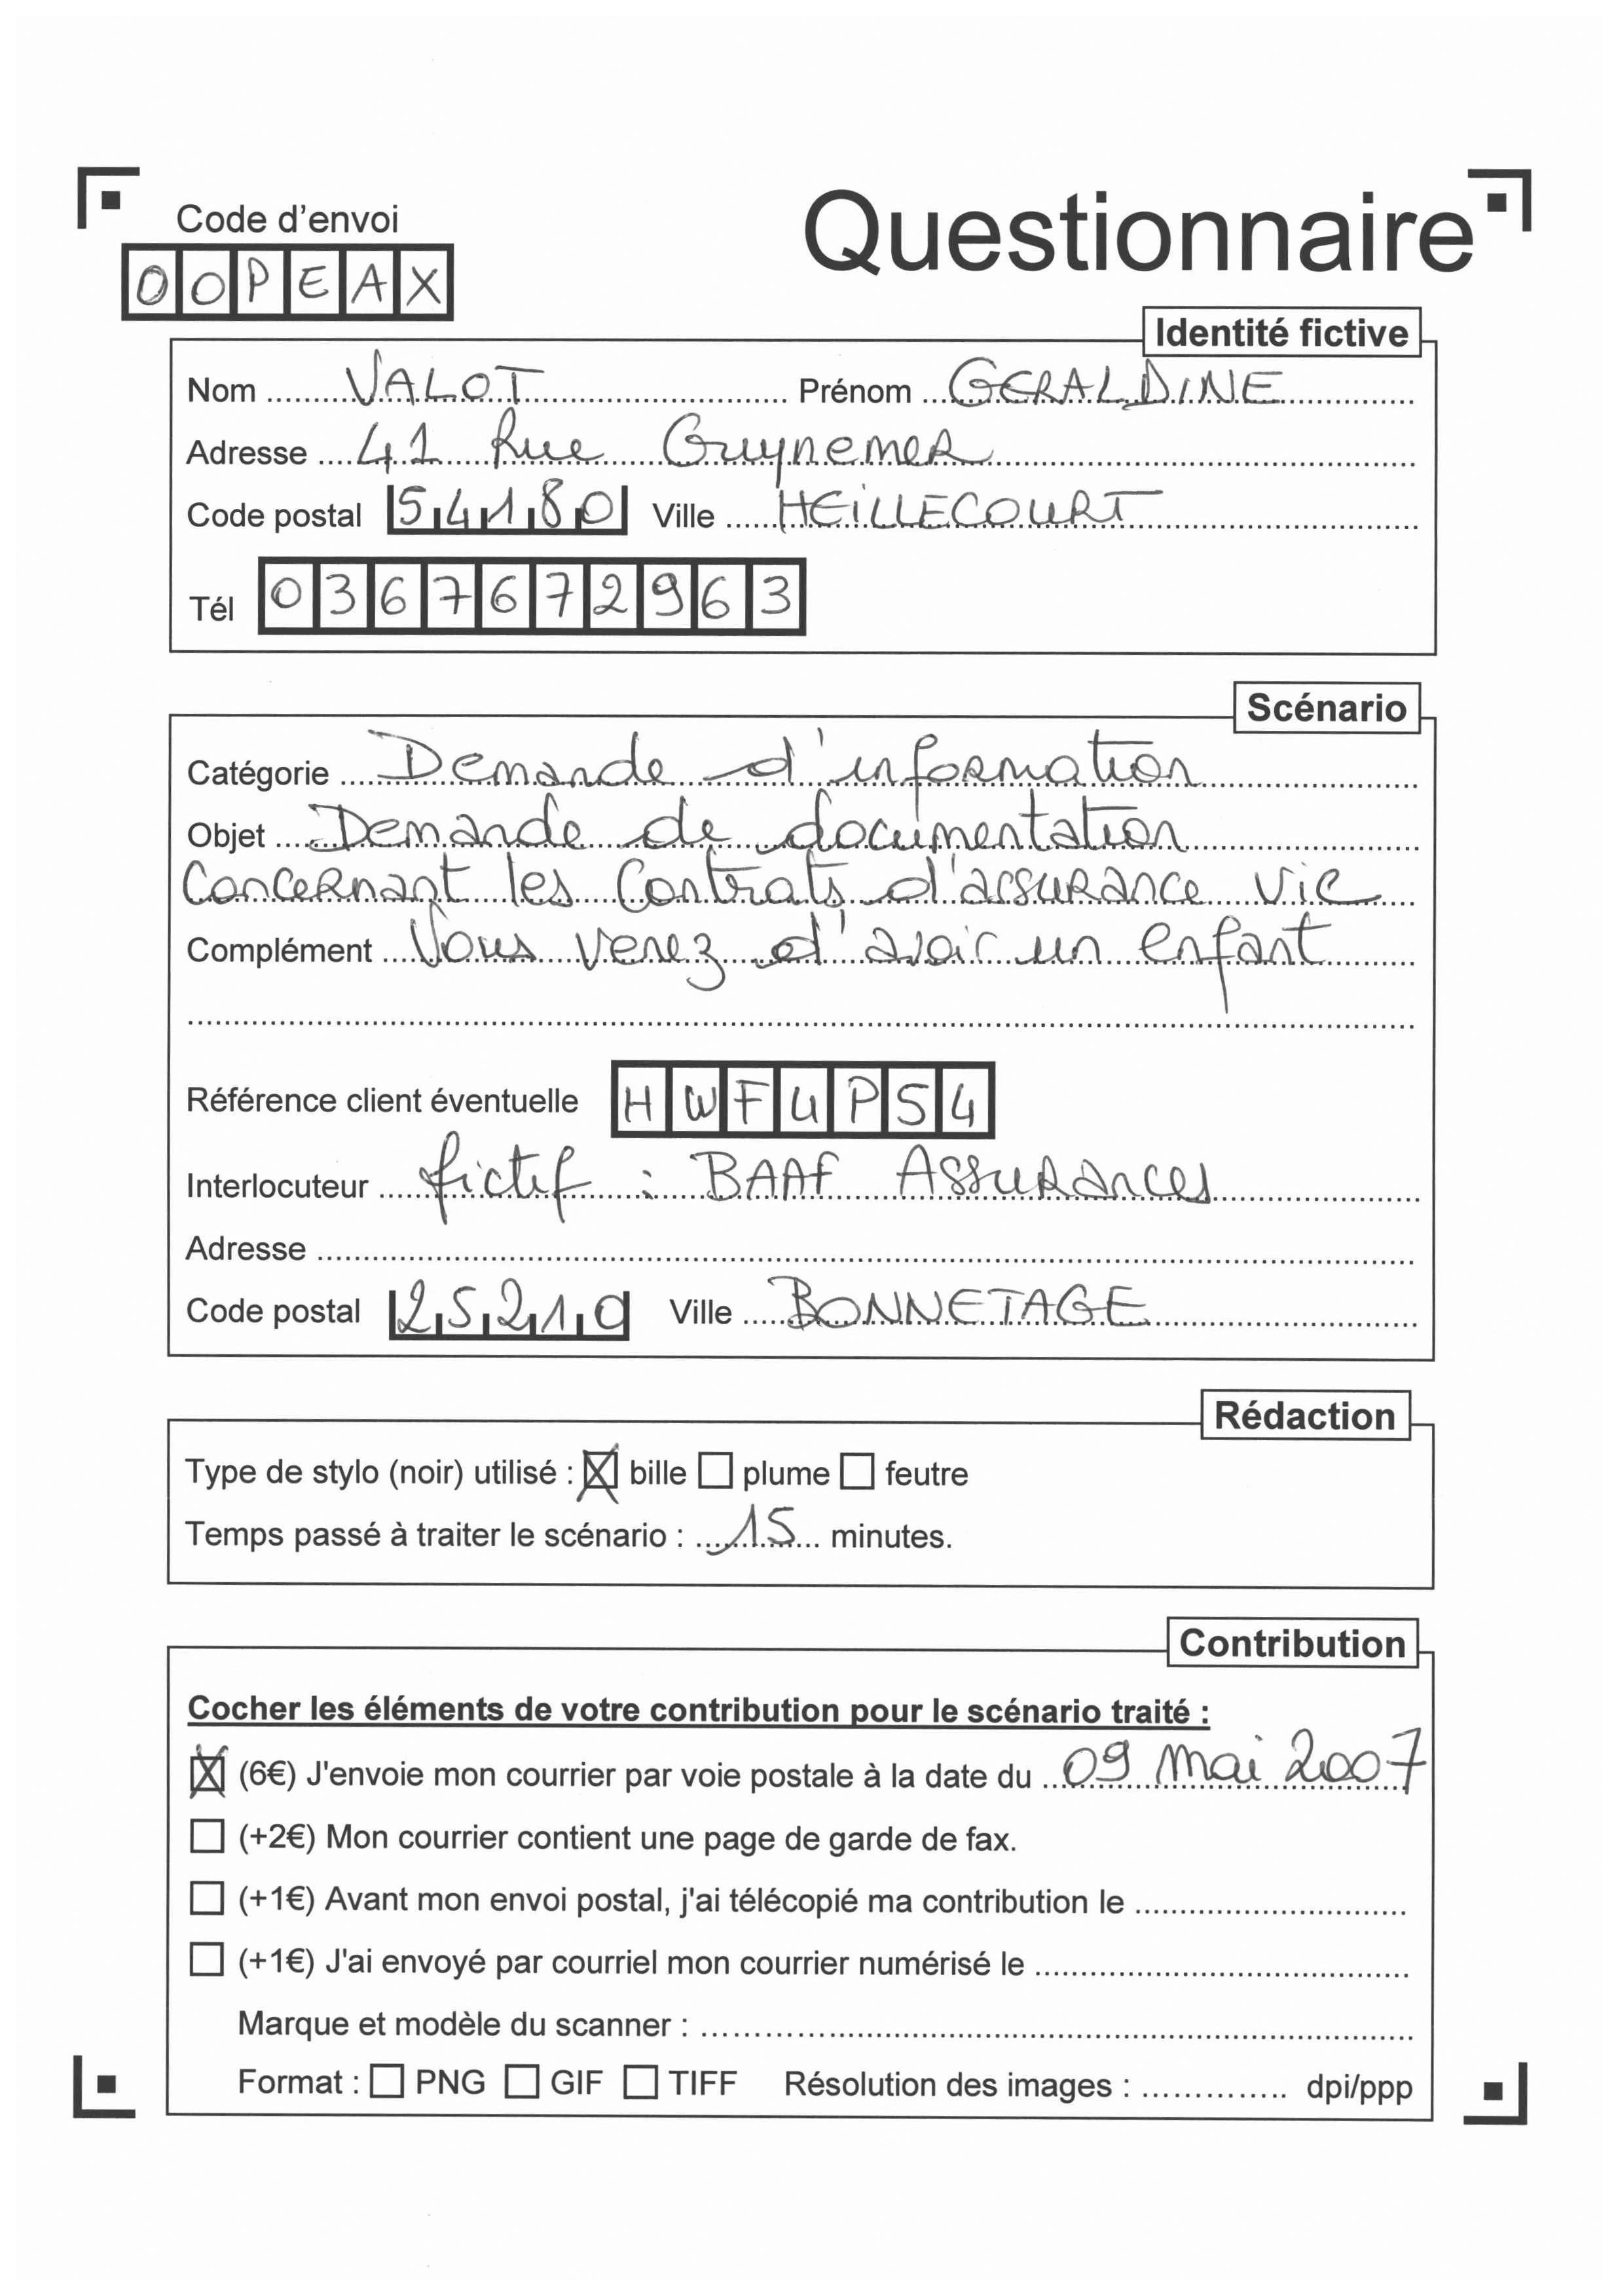 Code d'envoi
Questionnaire
DOPEAX
Identité fictive
Nom VALOT Prénom GERALDINE
Adresse 41 Rue Guynemer
Code postal 54180 Ville HEILLECOURT
Tél 0367672963
Scénario
Catégorie Demande d'information
Objet Demande de documentation
Concernant les Contrats d'assurance vie
Complément Vous venez d'avoir un enfant
Référence client éventuelle HWFUPS4
Interlocuteur fictif : BAAF Assurances
Adresse
Code postal 25210 Ville BONNETAGE
Rédaction
Type de stylo (noir) utilisé : ☒ bille ☐ plume ☐ feutre
Temps passé à traiter le scénario : 15 minutes.
Contribution
Cocher les éléments de votre contribution pour le scénario traité :
☒ (6€) J'envoie mon courrier par voie postale à la date du 09 mai 2007
☐ (+2€) Mon courrier contient une page de garde de fax.
☐ (+1€) Avant mon envoi postal, j'ai télécopié ma contribution le
☐ (+1€) J'ai envoyé par courriel mon courrier numérisé le
Marque et modèle du scanner :
Format : ☐ PNG ☐ GIF ☐ TIFF Résolution des images : dpi/ppp